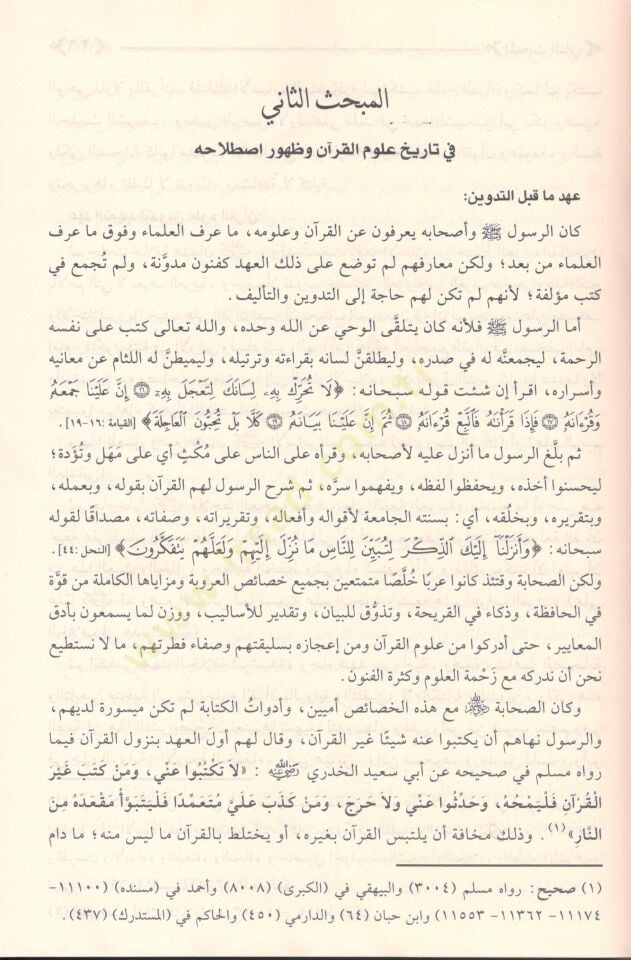 المبحث الثاني
في تاريخ علوم القرآن وظهور اصطلاحه
عهد ما قبل التدوين:
كان الرسول ﷺ وأصحابه يعرفون عن القرآن وعلومه، ما عرف العلماء وفوق ما عرف
العلماء من بعد؛ ولكن معارفهم لم توضع على ذلك العهد كفنون مدوَّنة، ولم تُجمع في
كتب مؤلفة؛ لأنهم لم تكن لهم حاجة إلى التدوين والتأليف.
أما الرسول ﷺ فلأنه كان يتلقَّى الوحي عن الله وحده، والله تعالى كتب على نفسه
الرحمة، ليجمعنَّه له في صدره، وليطلقنَّ لسانه بقراءته وترتيله، وليميطنَّ له اللثام عن معانيه
وأسراره، اقرأ إن شئت قوله سبحانه: ﴿لَا تُحَرِّكْ بِهِۦ لِسَانَكَ لِتَعْجَلَ بِهِۦٓ ۝١٦ إِنَّ عَلَيْنَا جَمْعَهُۥ
وَقُرْءَانَهُۥ ۝١٧ فَإِذَا قَرَأْنَٰهُ فَٱتَّبِعْ قُرْءَانَهُۥ ۝١٨ ثُمَّ إِنَّ عَلَيْنَا بَيَانَهُۥ ۝١٩ كَلَّا بَلْ تُحِبُّونَ ٱلْعَاجِلَةَ﴾ [القيامة: ١٦-١٩].
ثم بلَّغ الرسول ما أنزل عليه لأصحابه، وقرأه على الناس على مُكْثٍ أي على مَهَل وتُؤَدة؛
ليحسنوا أخذه، ويحفظوا لفظه، ويفهموا سرَّه، ثم شرح الرسول لهم القرآن بقوله، وبعمله،
وبتقريره، وبخلُقه، أي: بسنته الجامعة لأقواله وأفعاله، وتقريراته، وصفاته، مصداقًا لقوله
سبحانه: ﴿وَأَنزَلْنَآ إِلَيْكَ ٱلذِّكْرَ لِتُبَيِّنَ لِلنَّاسِ مَا نُزِّلَ إِلَيْهِمْ وَلَعَلَّهُمْ يَتَفَكَّرُونَ﴾ [النحل: ٤٤].
ولكن الصحابة وقتئذ كانوا عربًا خُلَّصًا متمتعين بجميع خصائص العروبة ومزاياها الكاملة من قوَّة
في الحافظة، وذكاء في القريحة، وتذوُّق للبيان، وتقدير للأساليب، ووزن لما يسمعون بأدق
المعايير، حتى أدركوا من علوم القرآن ومن إعجازه بسليقتهم وصفاء فطرتهم، ما لا نستطيع
نحن أن ندركه مع زَحْمة العلوم وكثرة الفنون.
وكان الصحابة ﵃ مع هذه الخصائص أميين، وأدواتُ الكتابة لم تكن ميسورة لديهم،
والرسول نهاهم أن يكتبوا عنه شيئًا غير القرآن، وقال لهم أول العهد بنزول القرآن فيما
رواه مسلم في صحيحه عن أبي سعيد الخدري رَضِيَ اللهُ عَنْهُ : «لَا تَكْتُبُوا عَنِّي، وَمَنْ كَتَبَ غَيْرَ
الْقُرْآنِ فَلْيَمْحُهُ، وَحَدِّثُوا عَنِّي وَلَا حَرَجَ، وَمَنْ كَذَبَ عَلَيَّ مُتَعَمِّدًا فَلْيَتَبَوَّأْ مَقْعَدَهُ مِنَ
النَّارِ»(١). وذلك مخافة أن يلتبس القرآن بغيره، أو يختلط بالقرآن ما ليس منه؛ ما دام
(١) صحيح: رواه مسلم (٣٠٠٤) والبيهقي في (الكبرى) (٨٠٠٨) وأحمد في (مسنده) (١١١٠٠-
١١١٧٤- ١١٣٦٢- ١١٥٥٣) وابن حبان (٦٤) والدارمي (٤٥٠) والحاكم في (المستدرك) (٤٣٧).